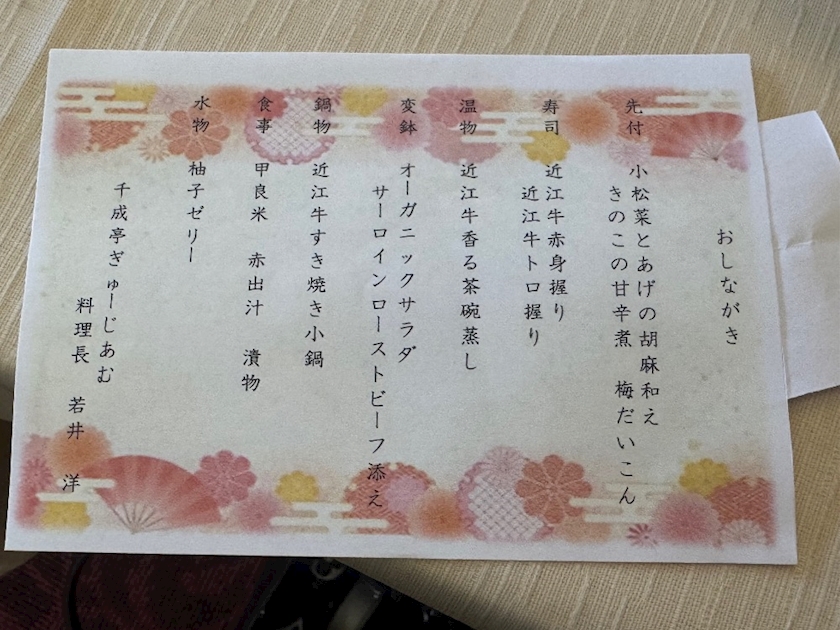 おしながき
先付 小松菜とあげの胡麻和え
きのこの甘辛煮 梅だいこん
寿司 近江牛赤身握り
近江牛トロ握り
温物 近江牛香る茶碗蒸し
変鉢 オーガニックサラダ
サーロインローストビーフ添え
鍋物 近江牛すき焼き小鍋
食事 甲良米 赤出汁 漬物
水物 柚子ゼリー
千成亭ぎゅーじあむ
料理長 若井 洋